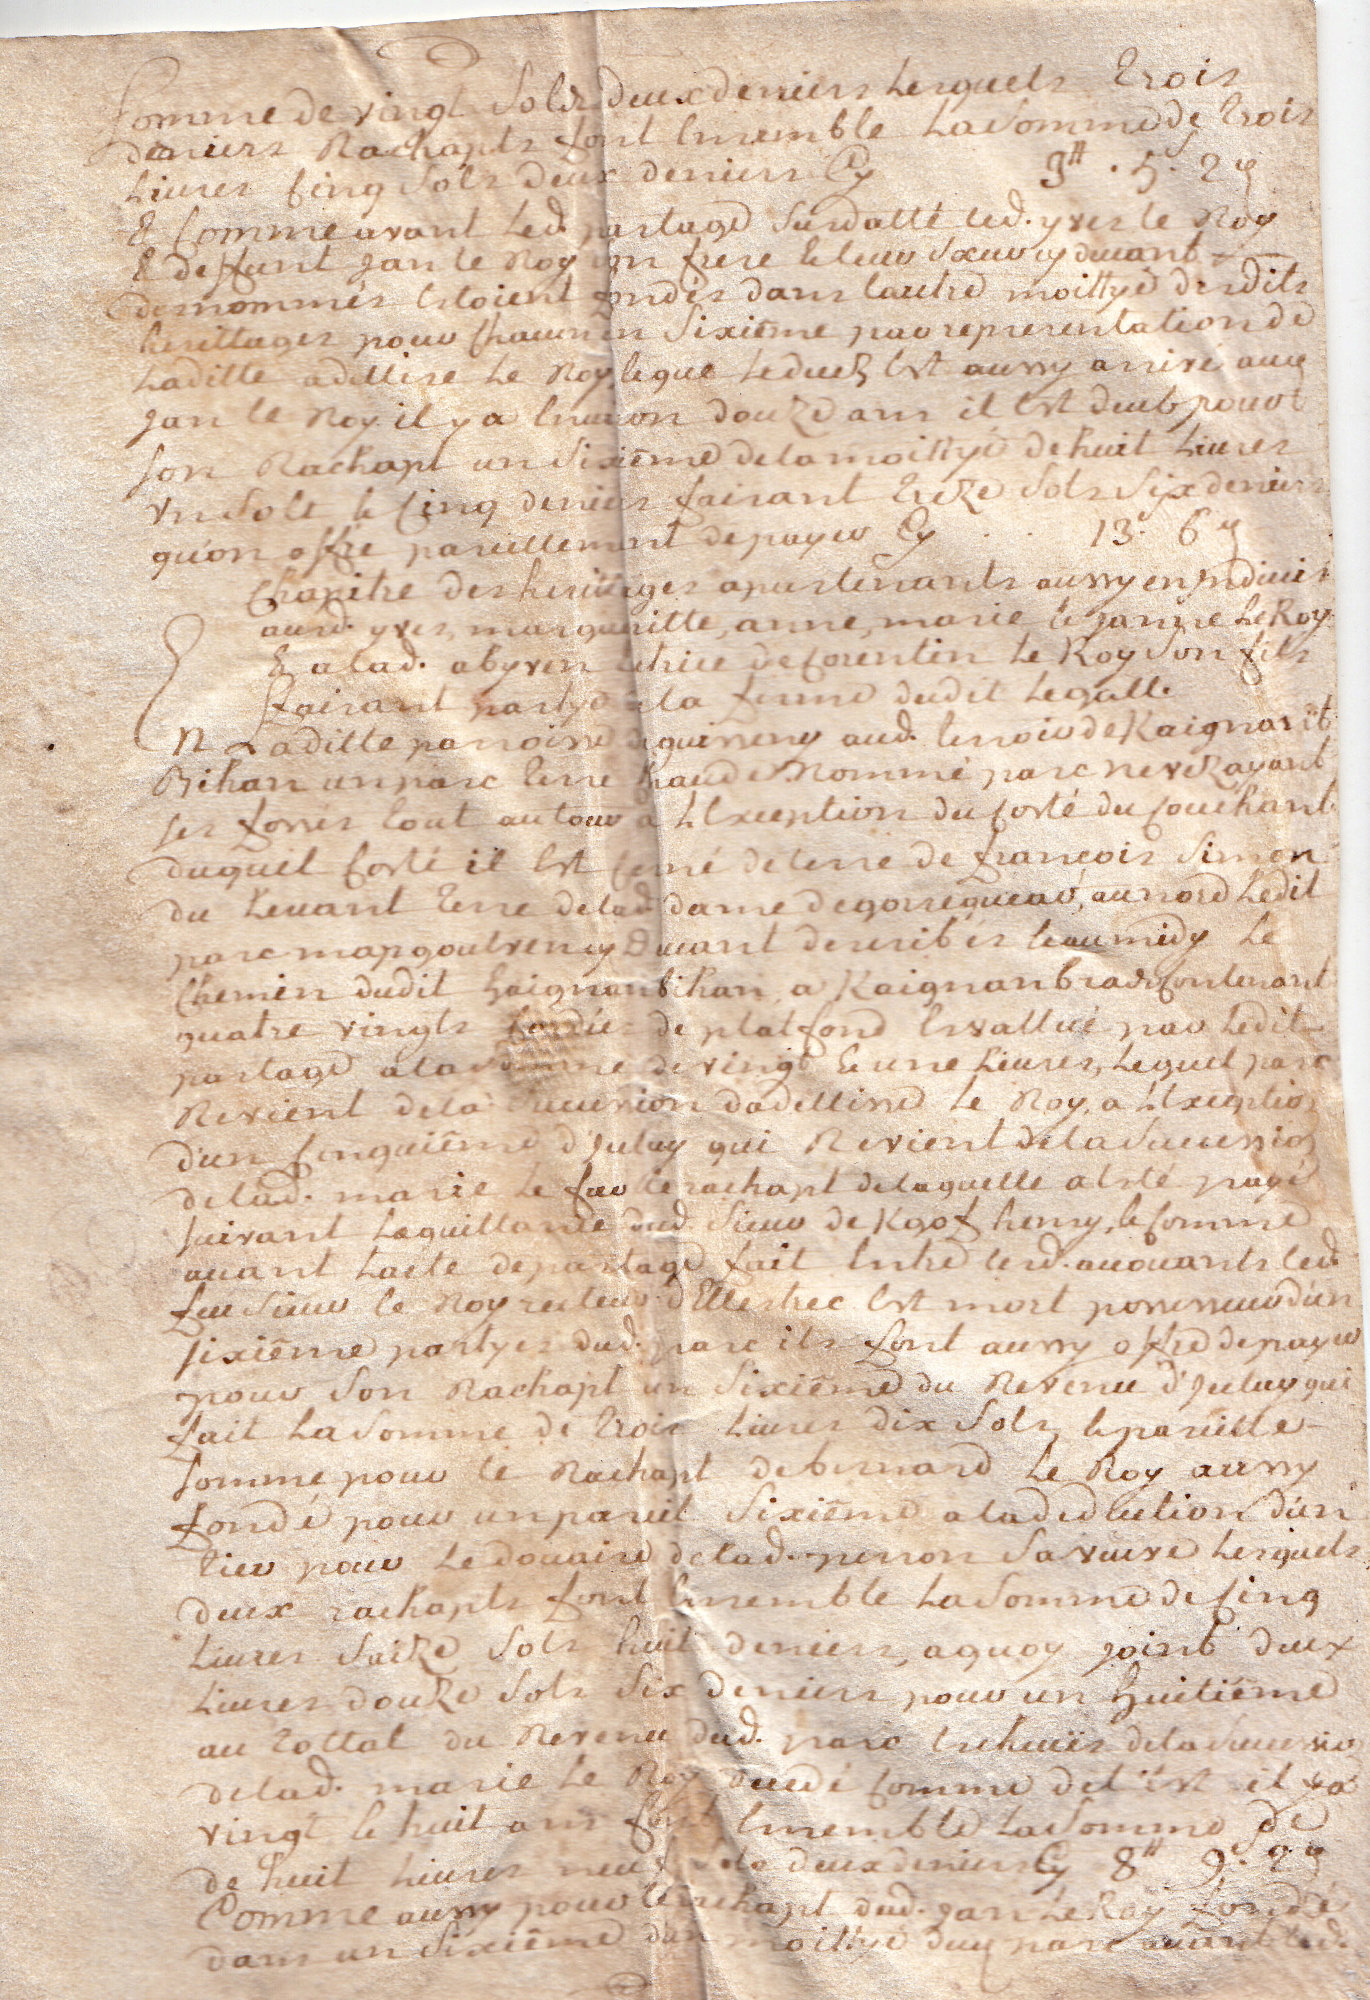 Somme de vingt Sols deux deniers Lesquels Trois
derniers Rachapts font Ensemble La Somme de Trois
Livres Cinq Sols deux deniers Cy 3tt. 5s. 2d
Et Comme avant Led. partage Surdatté led. yves le Roy
& deffunt jan le Roy son frere
desnommés Estoient fondés dans lautre moittyé desdits
herittages pour Chacun un Sixiême par representation de
Laditte adellise Le Roy le deced Est aussy arrivé aud
jan le Roy il y a Environ douze ans il Est deub pour
Son Rachapt un Sixiême de la moittyé de huit Livres
un Sols & Cinq deniers faisant treze Sols Six deniers
qu'on offre pareillement de payer Cy . . 13s. 6d
Chapitre des herittages apartenants aussy en indivis
ausd. yves, margueritte, anne, marie & janne Le Roy
& a lad. abyven de Corentin Le Roy Son fils
faisant partye de la ferme dudit Legall.
En Laditte parroisse de guisseny aud. terroir de Kaignan
Bihan un parc terre chaude Nommé parc nevez ayant
ses fossés tout autour a L'Exception du Costé du Couchant
duquel Costé il Est Cerné de terre de françois Simon
du Levant terre de lad. dame de gorrequear, au nord Ledit
parc mapgoulven cy devant describés & au midy Le
Chemin dudit Kaignanbihan a Kaignanbras Contenant
quatre vingts Cordes de plat fond Evallué par Ledit
partage a la Somme de vingt & une Livres, Lequel parc
Revient de la Succession dadellisse Le Roy, a L'Exception
d'un Cinquiême d'iceluy qui Revient de la Succession
de lad. marie Le le rachapt de laquelle a Esté payé
suivant La quittance dud. Sieur de Henry, & Comme
avant L'acte de partage fait Entre lesd. avouants led.
feu Sieur le Roy recteur d'Ellestrec Est mort possesseur d'un
sixiême partyes dud. parc ils font aussy offre de payer
pour Son Rachapt un Sixiême du Revenu d'iceluy qui
fait La Somme de trois Livres dix Sols & pareille
somme pour le Rachapt de bernard Le Roy aussy
fondé pour un pareil Sixiême a la deduction d'un
tier pour Le douaire de lad. perron Sa veuve Lesquels
deux rachapts font Ensemble La Somme de Cinq
Livres Saize Sols huit deniers, a quoy joint deux
Livres douze Sols Six deniers pour un huitiême
au tottal du Revenu dud. parc de la Succession
de lad. marie Le Roy decedé Comme dit Est il y a
vingt & huit ans fait Ensemble La Somme de
de huit Livres neuf Sols deux deniers Cy 8tt 9s. 2d
Comme aussy pour le rachapt dud. jan Le Roy fondé
dans un Sixiême d'un moittyé dud parc avant led.